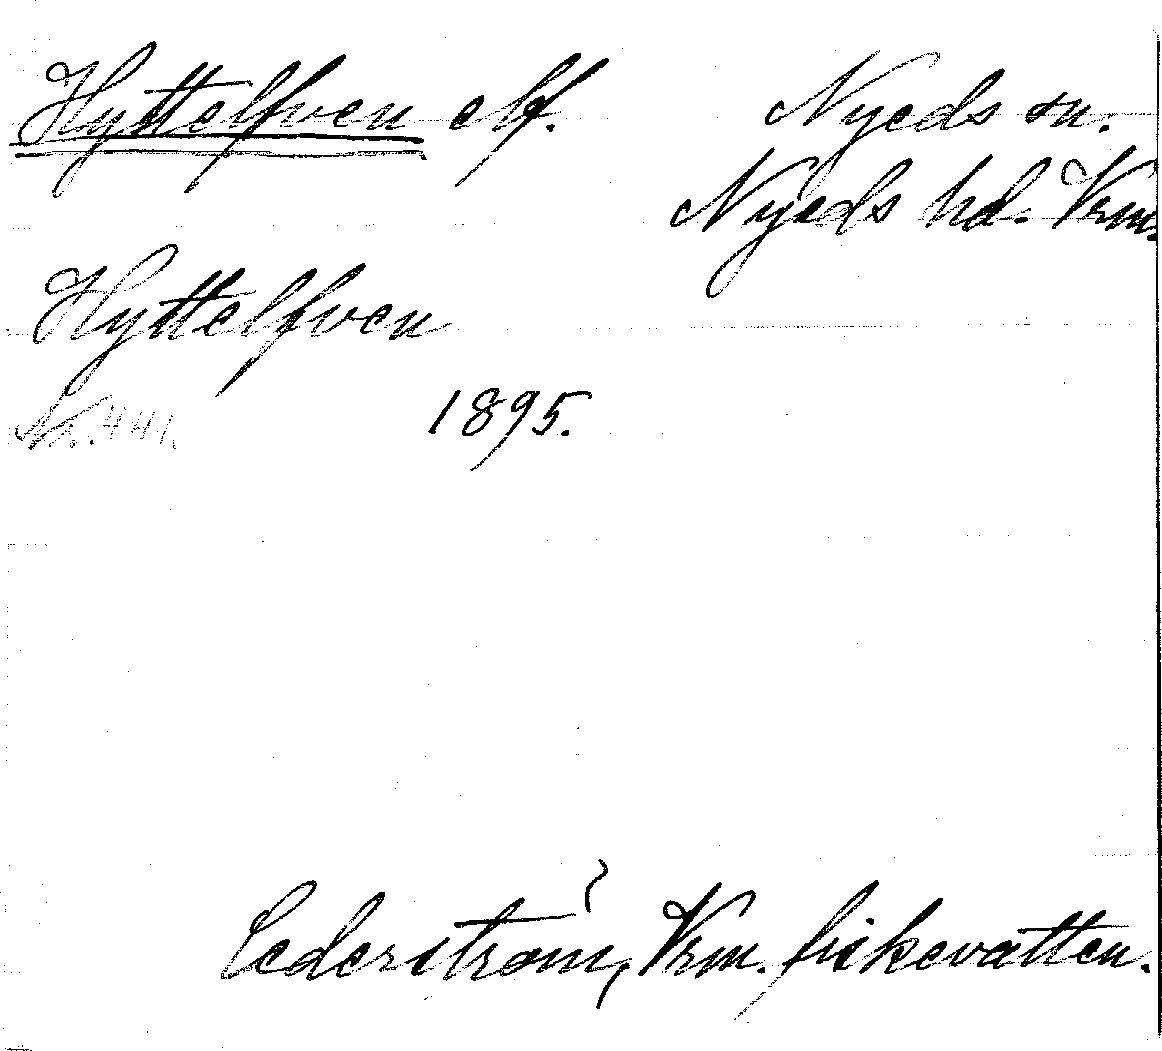 Hyttelfven elf. Nyeds sn.
Nyeds hd. Vrm.
Hyttelfven
Nr. 441. 1895.
Cederström, Vrm. fiskevatten.